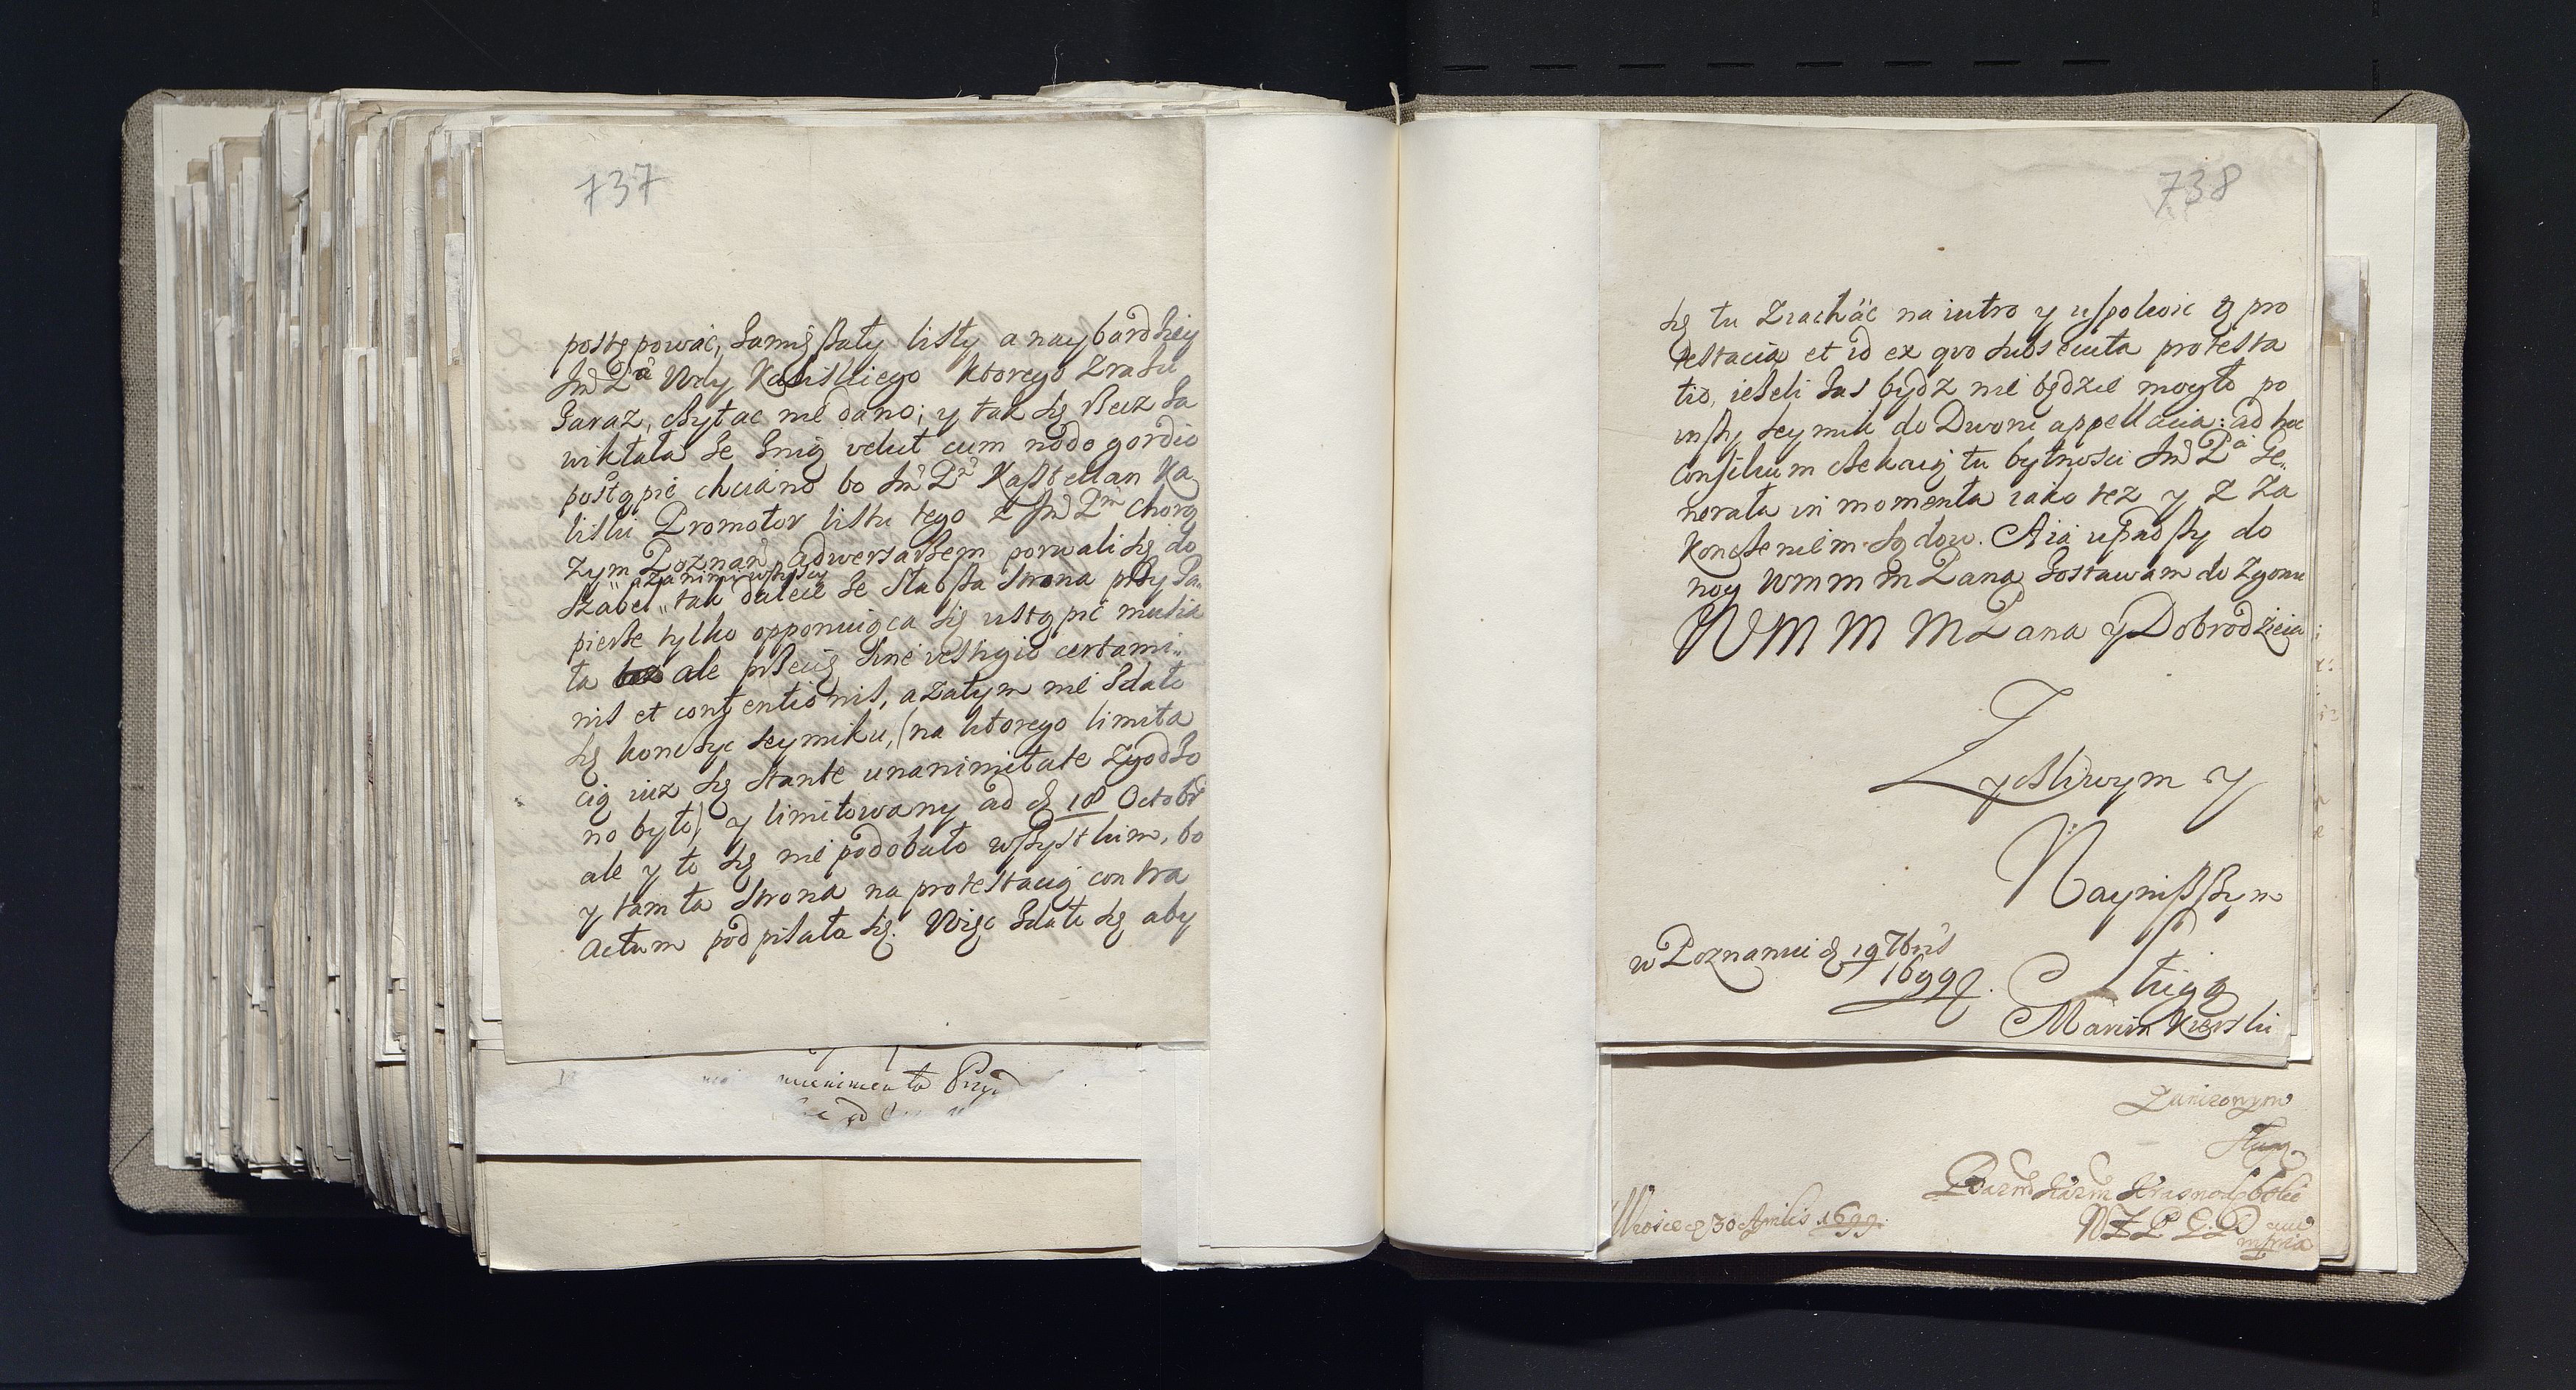 737
postępować, Samięszały listy a nay bardziey
Jmꝺ Pa Wdy Kaliskiego ktorego zrazu
zaraz, czytac nie dano; y tak się Recz za
wiktała ze z nią velut cum nodo gordio
postąpić chciano bo Jmć Pan Kasztellan Ka
liski Promotor listu tego z Jmꝺ Pm Chorą
zym Poznan adwersarzem porwali się do
a za nimi wszyscy
Szabel „tak dalece ze słabsza strona przy Pa
piersze tylko opponuiąca się ustąpić musia
ła ale przecię sine vestigio certami„
nis et contentionis, a zatym nie zdało
się konczyc seymiku, (na ktorego limita
cią iuz się stante unanimitate zgodzo
no było) y limitowany ad d 18 Octobr
ale y to się nie podobało wszystkim, bo
y tamta strona na protestacią contra
actum podpisała się. Więc zdało się aby
738
się tu ziachać na iutro y uspokoic tę pro
testacia et id ex quo subsecuta protesta
tio, iezeli zas bydz nie będzie mogło po
inszy seymik do Dworu appellacia: ad hoc
consilium czekaią tu bytnosci Jmꝺ Pa Ge„
nerała in momenta iako tez y z za
konczeniem sądow. A ia upadszy do
nog Wm m m Pana zostawam do zgonu
W M M M Pana y Dobrodzieia
Zyczliwym y
Nayniższym
Sługą
Marcin Kierski
w Poznaniu d 19 7bris
1699
munimenta
Uniżonym
Sługą
d 30 Aprilis 1699.